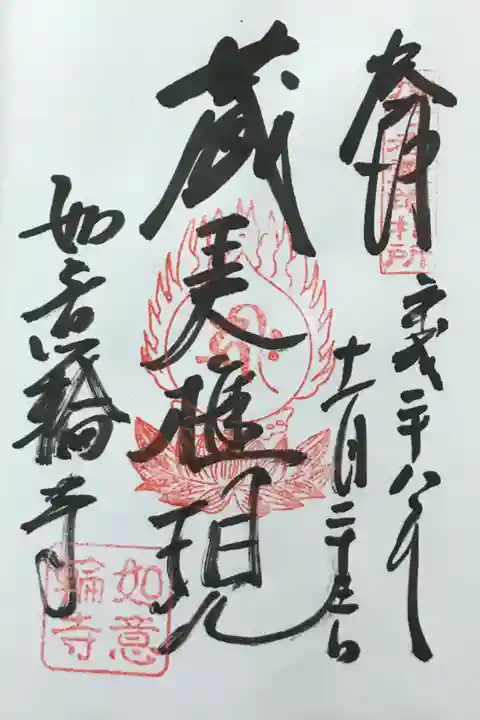 奉拝
平成二十八年
十一月二十三日
蔵王大権現
如意輪寺
如意
輪寺